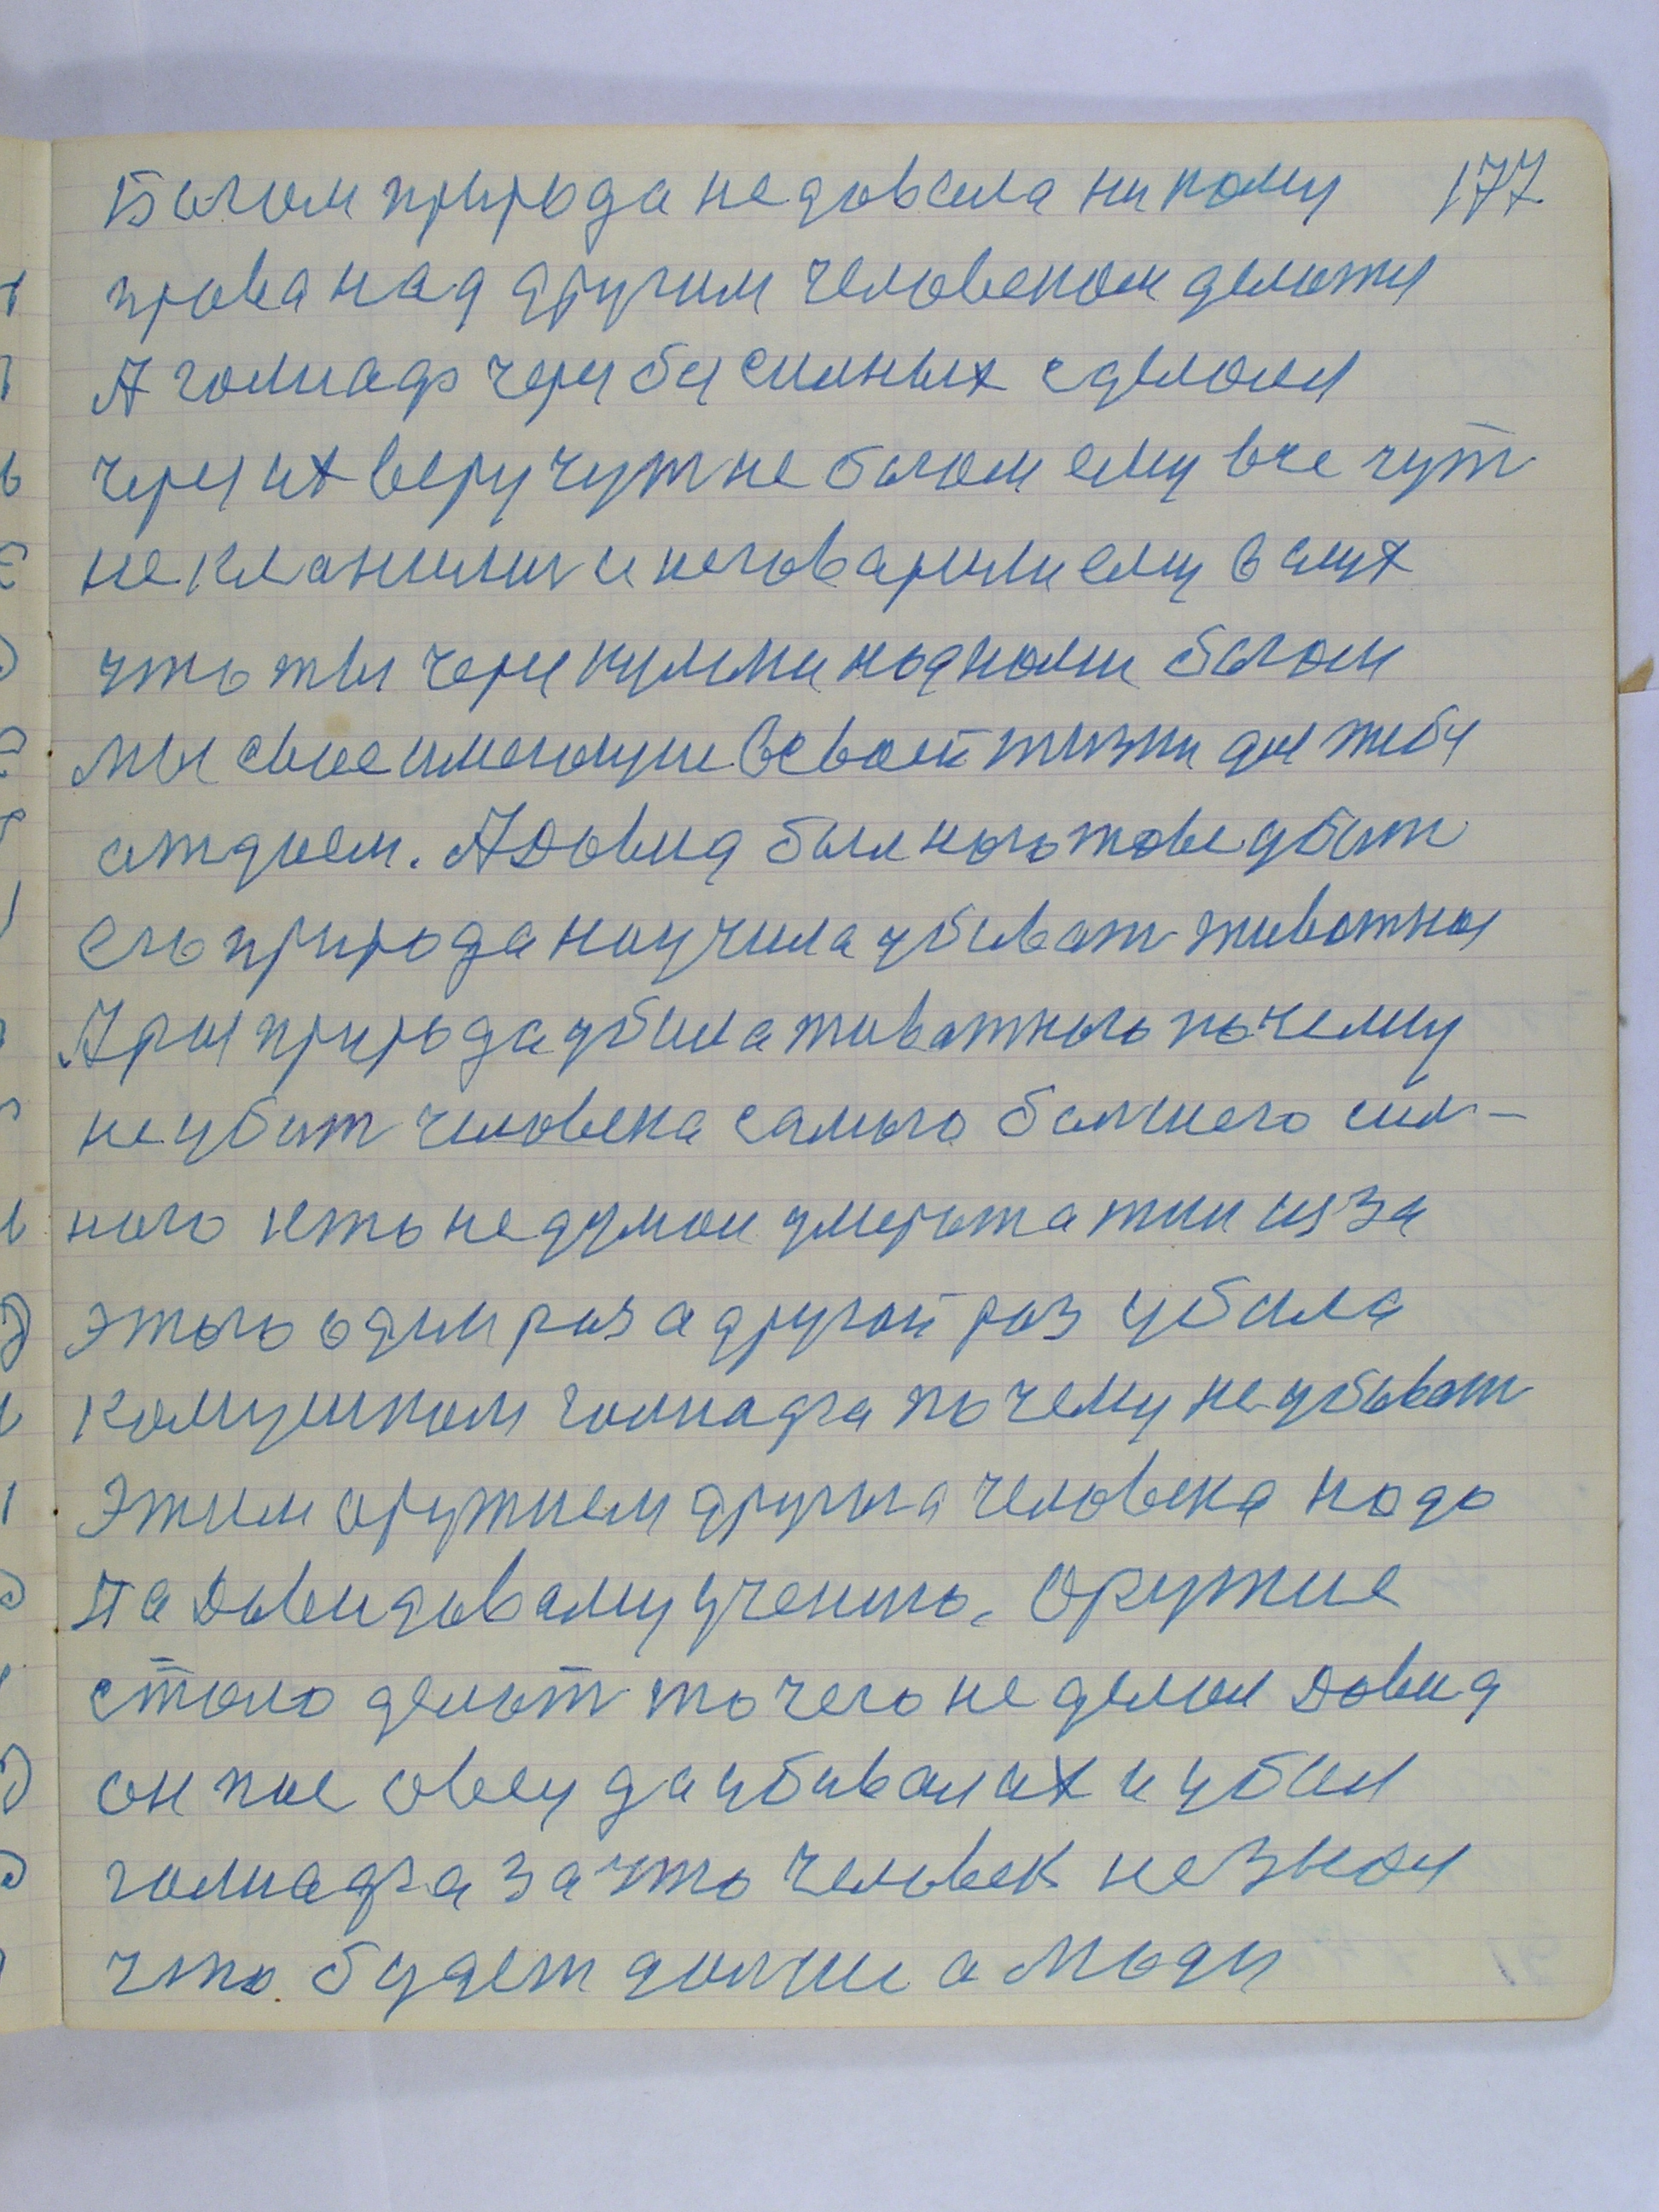 Богом природа недовала ни кому 177
права над другим человеком делотся
А голиаф через бусильных сделолся
через их веру чут не богом ему все чут
не кланились и неговарили ему в слух
что ты через кулаки над нами богом
мы свое имеющие в своей жизни для тебя
отдаем. А Довид был кого товедубит
его природа научила убиват животных
А роз природа убила животного почему
неубит человека самого большего сил-
ного кто не думол умерт а тип изза
этого один раз а другой роз убила
комушком голиафа почему не убиват
этим оружием другога человека надо
Па Довидоваму учению. Оружие
стало делат то чего не делал Довид
он пас овец да убивал их и убил
голиафа за что человек незнал
что будет дальше а люди